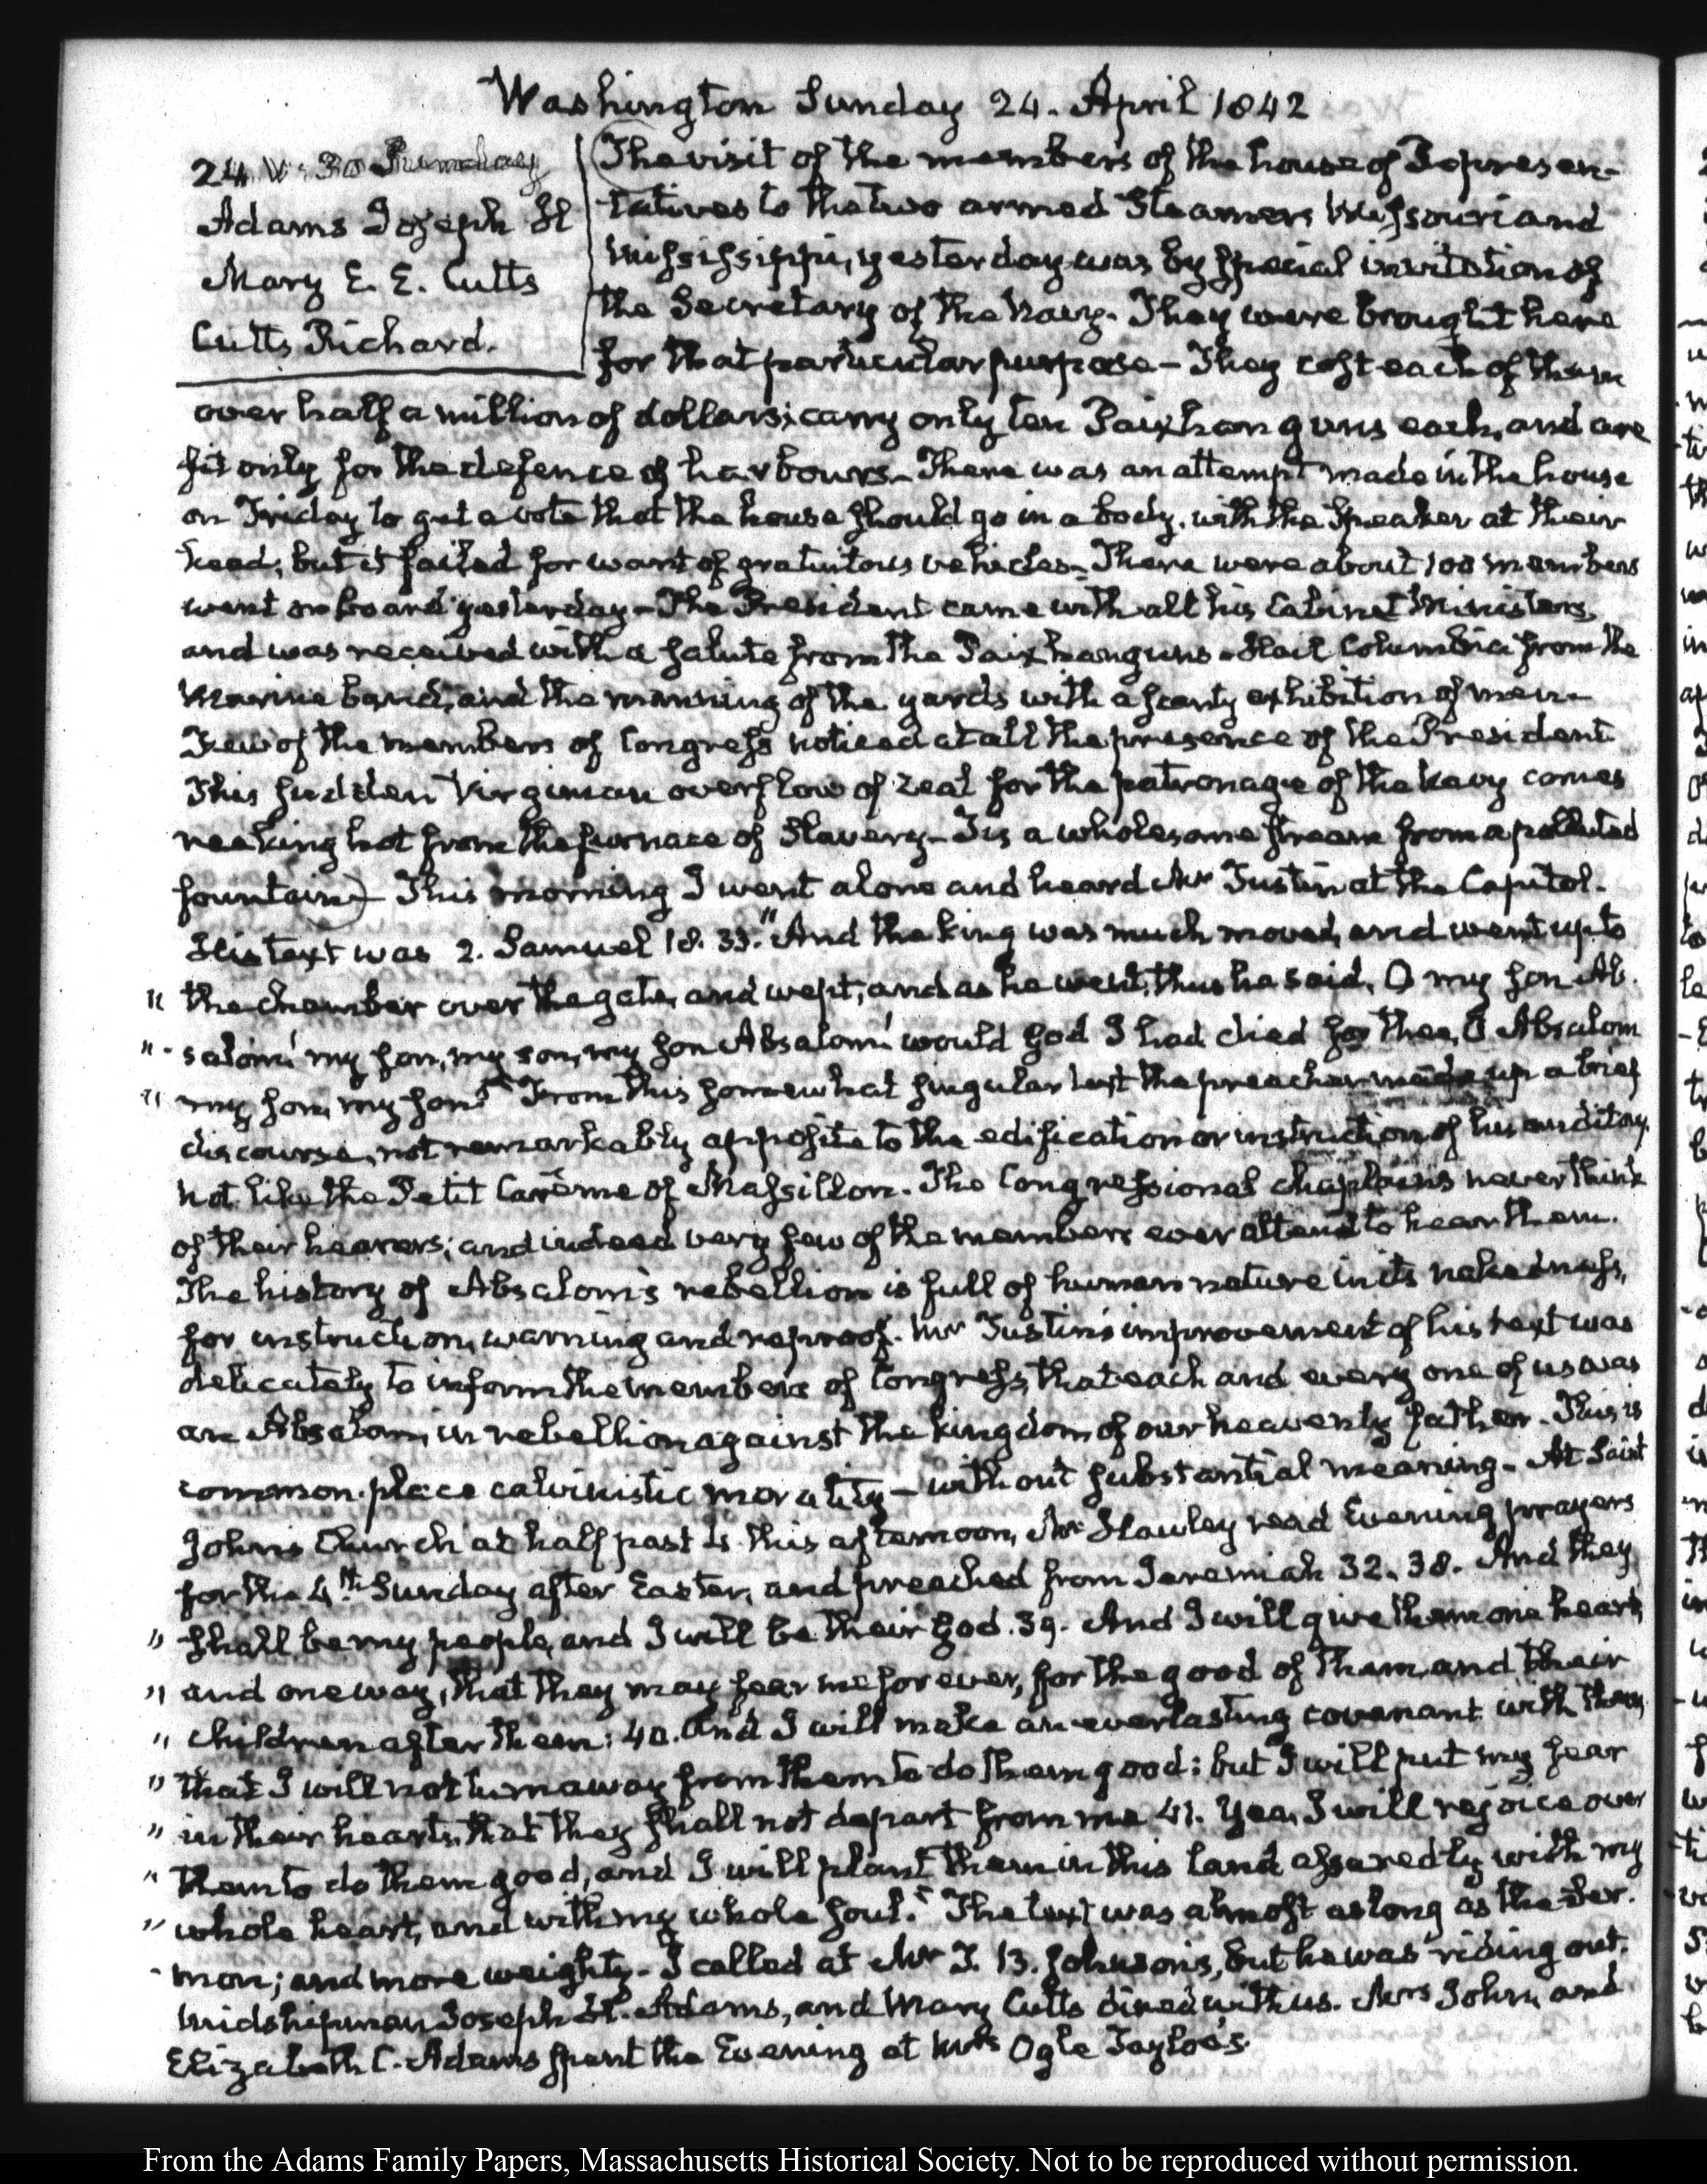 Washington Sunday 24. April 1842
24. V:30 Sunday
Adams Joseph H
Mary E. E. Cutts
Cutts Richard.
The visit of the members of the house of Represen-
tatives to the two armed Steamers Missouri and
Mississippi, yesterday was by special invitation of
the Secretary of the Navy. They were brought here
for that particular purpose - They cost each of them
over half a million of dollars; carry only ten Paixhan guns each, and are
fit only for the defence of harbours - There was an attempt made in the house
on Friday to get a vote that the house should go in a body, with the Speaker at their
head; but it failed for want of gratuitous vehicles - There were about 100 members
went on board yesterday - The President came with all his Cabinet Ministers,
and was received with a salute from the Paixhan guns - Hail Columbia from the
Marine band, and the manning of the yards with a scanty exhibition of men -
Few of the members of Congress noticed at all the presence of the President
This sudden Virginian overflow of zeal for the patronage of the Navy comes
reeking hot from the furnace of Slavery - Tis a wholesome stream from a polluted
fountain) - This morning I went alone and heard Mr Tustin at the Capitol.
His text was 2. Samuel 18. 33. "And the king was much moved, and went up to
" the chamber over the gate, and wept; and as he went, thus he said, O my son Ab-
" - salom! my son, my son, my son Absalom! would God I had died for thee, O Absalom
" my son, my son" From this somewhat singular text the preacher made up a brief
discourse, not remarkably apposite to the edification or instruction of his auditory.
not like the Petit Carême of Massillon. The Congressional chaplains never think
of their hearers; and indeed very few of the members ever attend to hear them.
The history of Absalom's rebellion is full of human nature in its nakedness,
for instruction, warning and reproof. Mr Tustin's improvement of his text was
delicately to inform the members of Congress, that each and every one of us was
an Absalom, in rebellion against the kingdom of our heavenly father. This is
common-place calvinistic morality - without substantial meaning - At Saint
John's Church at half past 4 this afternoon, Mr Hawley read Evening prayers
for the 4th. Sunday after Easter, and preached from Jeremiah 32. 38. And they
" shall be my people, and I will be their God. 39. And I will give them one heart,
" and one way, that they may fear me for ever, for the good of them, and their
" children after them: 40. And I will make an everlasting covenant with them,
" that I will not turn away from them to do them good; but I will put my fear
" in their hearts, that they shall not depart from me 41. Yea, I will rejoice over
" them to do them good, and I will plant them in this land assuredly with my
" whole heart, and with my whole soul." The text was almost as long as the Ser-
- mon; and more weighty - I called at Mr J. B. Johnson's, but he was riding out.
Midshipman Joseph H. Adams, and Mary Cutts dined with us. Mrs John, and
Elizabeth C. Adams spent the Evening at Mrs Ogle Tayloe's.
From the Adams Family Papers, Massachusetts Historical Society. Not to be reproduced without permission.